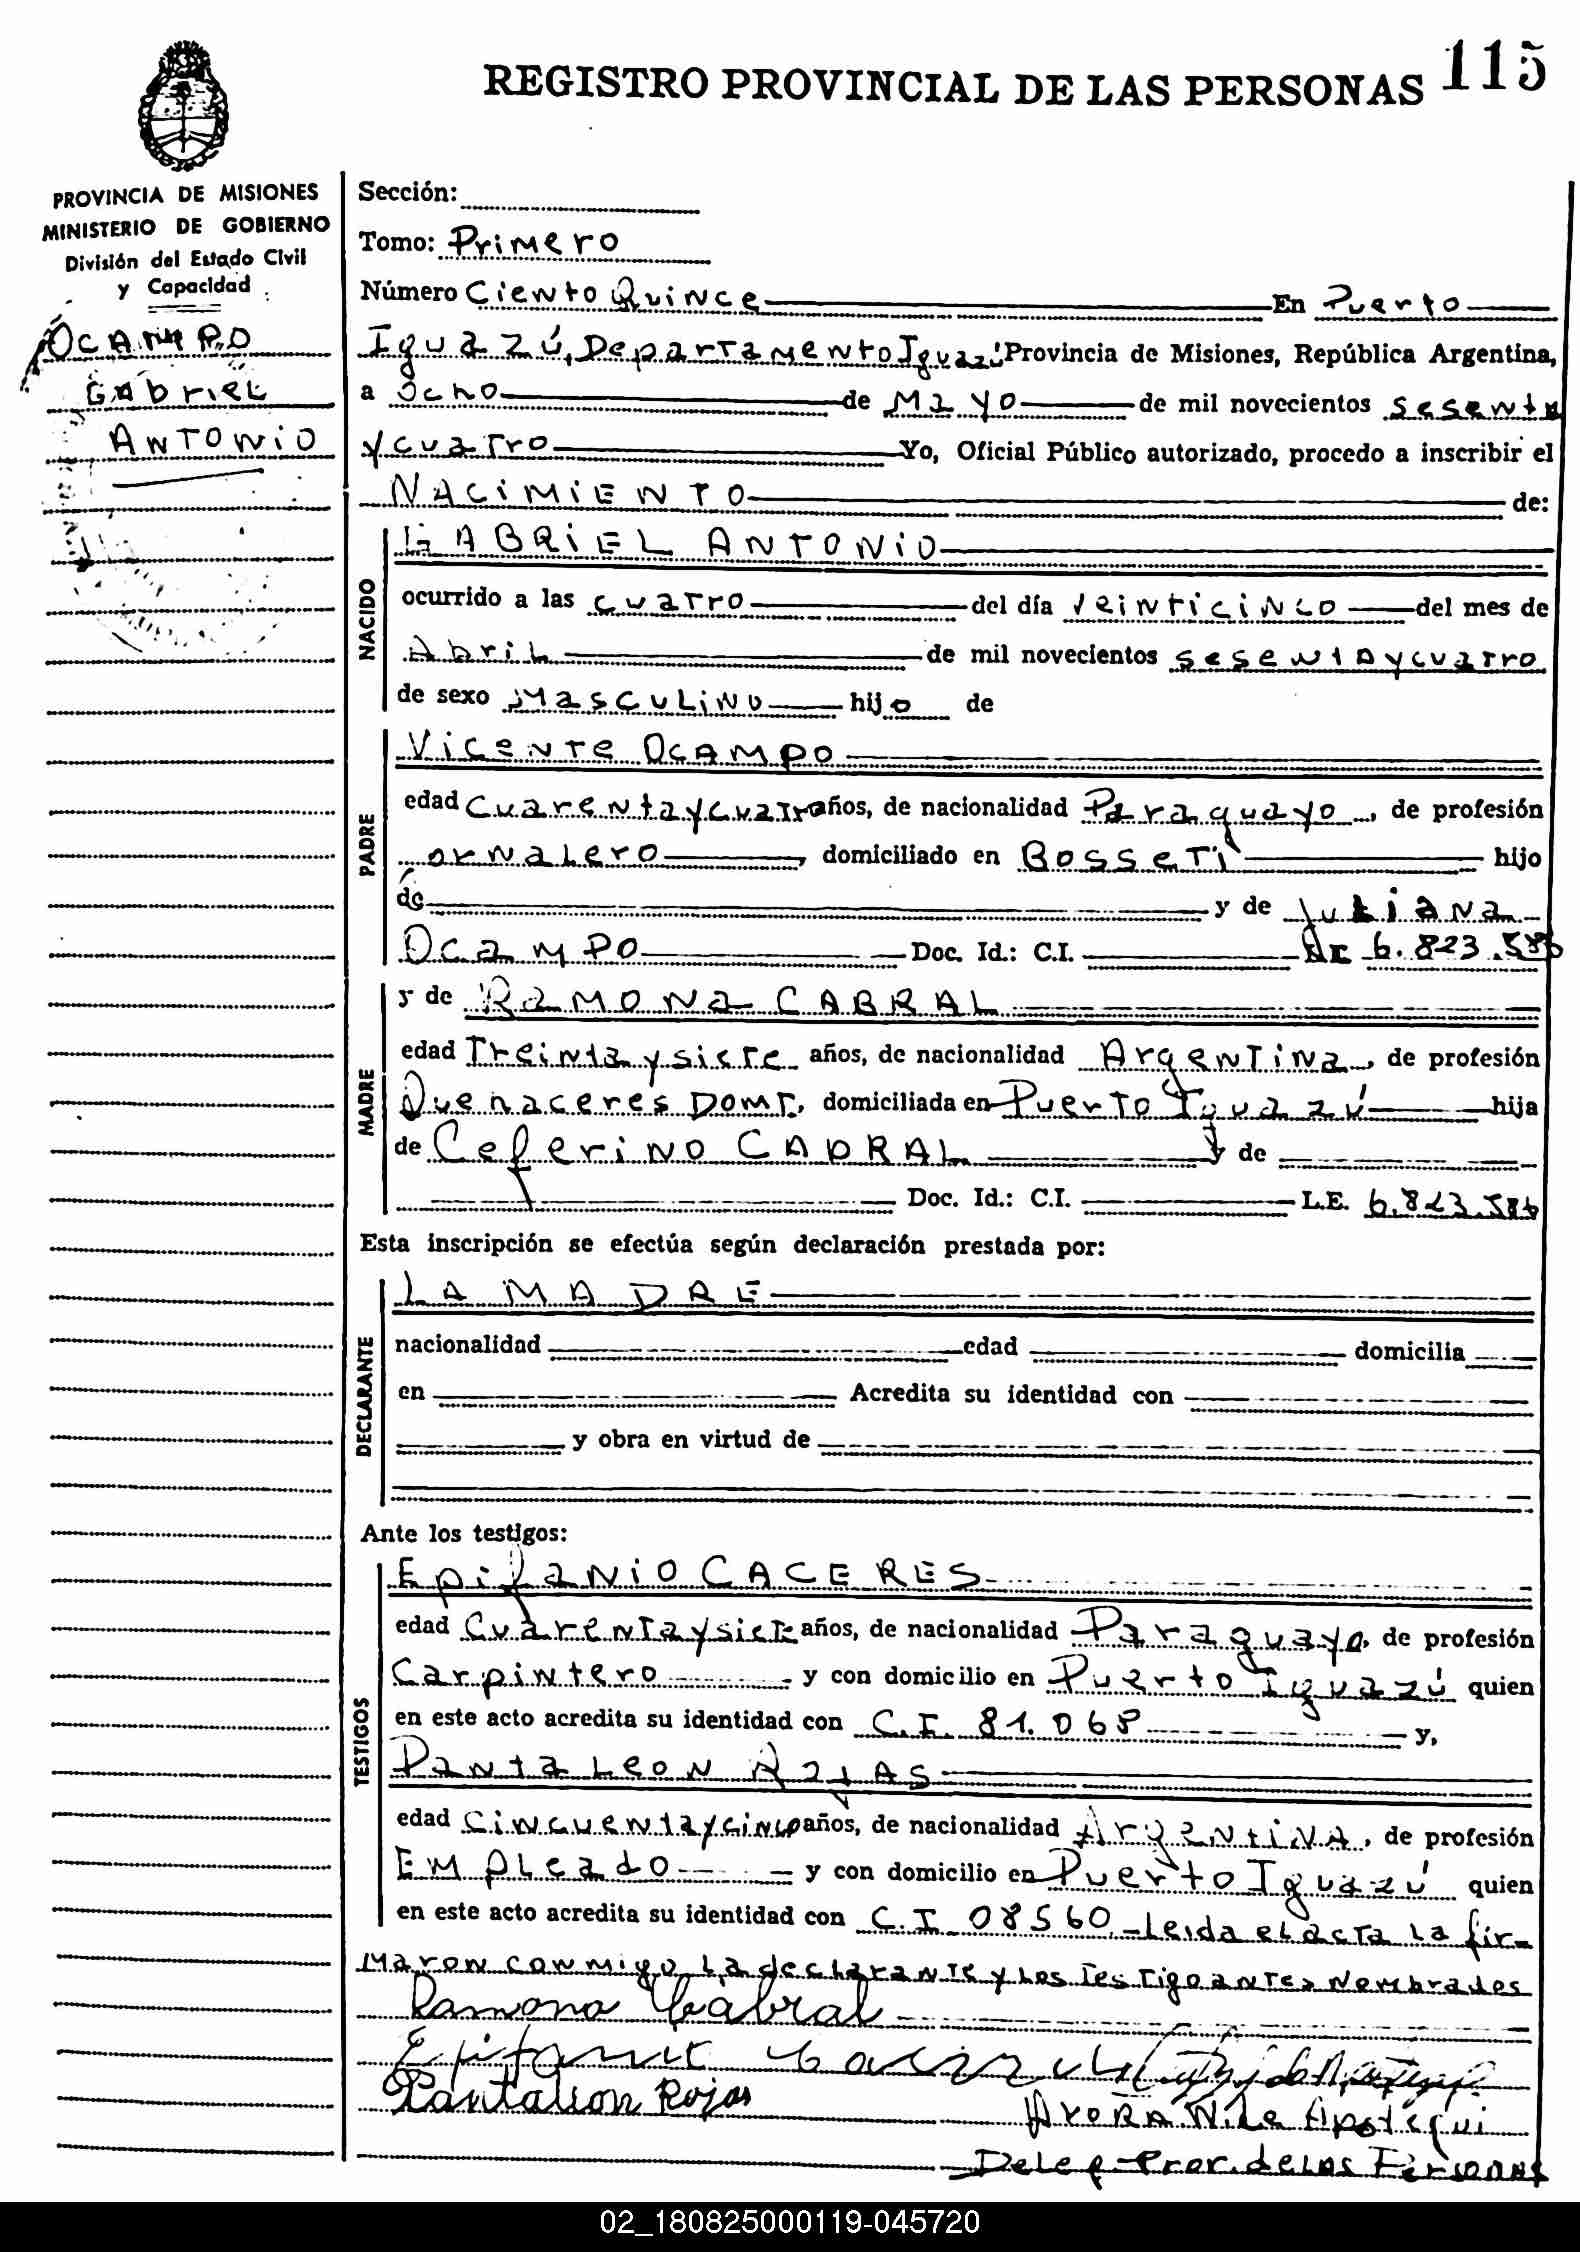 REGISTRO PROVINCIAL DE LAS PERSONAS 115
PROVINCIA DE MISIONES
MINISTERIO DE GOBIERNO
División del Estado Civil
y Capacidad
OCAMPO
GABRIEL
ANTONIO
Sección:
Tomo: Primero
Número Ciento Quince En Puerto
Iguazú, Departamento Iguazú Provincia de Misiones, República Argentina,
a Ocho de Mayo de mil novecientos sesenta
y cuatro Yo, Oficial Público autorizado, procedo a inscribir el
NACIMIENTO de:
NACIDO
GABRIEL ANTONIO
ocurrido a las cuatro del día veinticinco del mes de
Abril de mil novecientos sesenta y cuatro
de sexo Masculino hijo de
PADRE
Vicente Ocampo
edad Cuarenta y cuatro años, de nacionalidad Paraguayo, de profesión
jornalero, domiciliado en Bosseti hijo
de y de Juliana
Ocampo Doc. Id.: C.I. 6.823.586
MADRE
y de Ramona CABRAL
edad Treinta y siete años, de nacionalidad Argentina, de profesión
Quehaceres Domt., domiciliada en Puerto Iguazú hija
de Ceferino CABRAL y de
Doc. Id.: C.I. L.E. 6.823.586
Esta inscripción se efectúa según declaración prestada por:
DECLARANTE
LA MADRE
nacionalidad edad domicilia
en Acredita su identidad con
y obra en virtud de
Ante los testigos:
TESTIGOS
Epifanio CACERES
edad Cuarenta y siete años, de nacionalidad Paraguayo, de profesión
Carpintero y con domicilio en Puerto Iguazú quien
en este acto acredita su identidad con C.I. 81.068 y,
Pantaleon ROJAS
edad Cincuenta y cinco años, de nacionalidad Argentina, de profesión
Empleado y con domicilio en Puerto Iguazú quien
en este acto acredita su identidad con C.I 08560.- Leida el acta la fir-
maron conmigo la declarante y los testigo antes nombrados
Ramona Cabral
Pantalion Rojas
Deleg. Prov. de las Personas
02_180825000119-045720